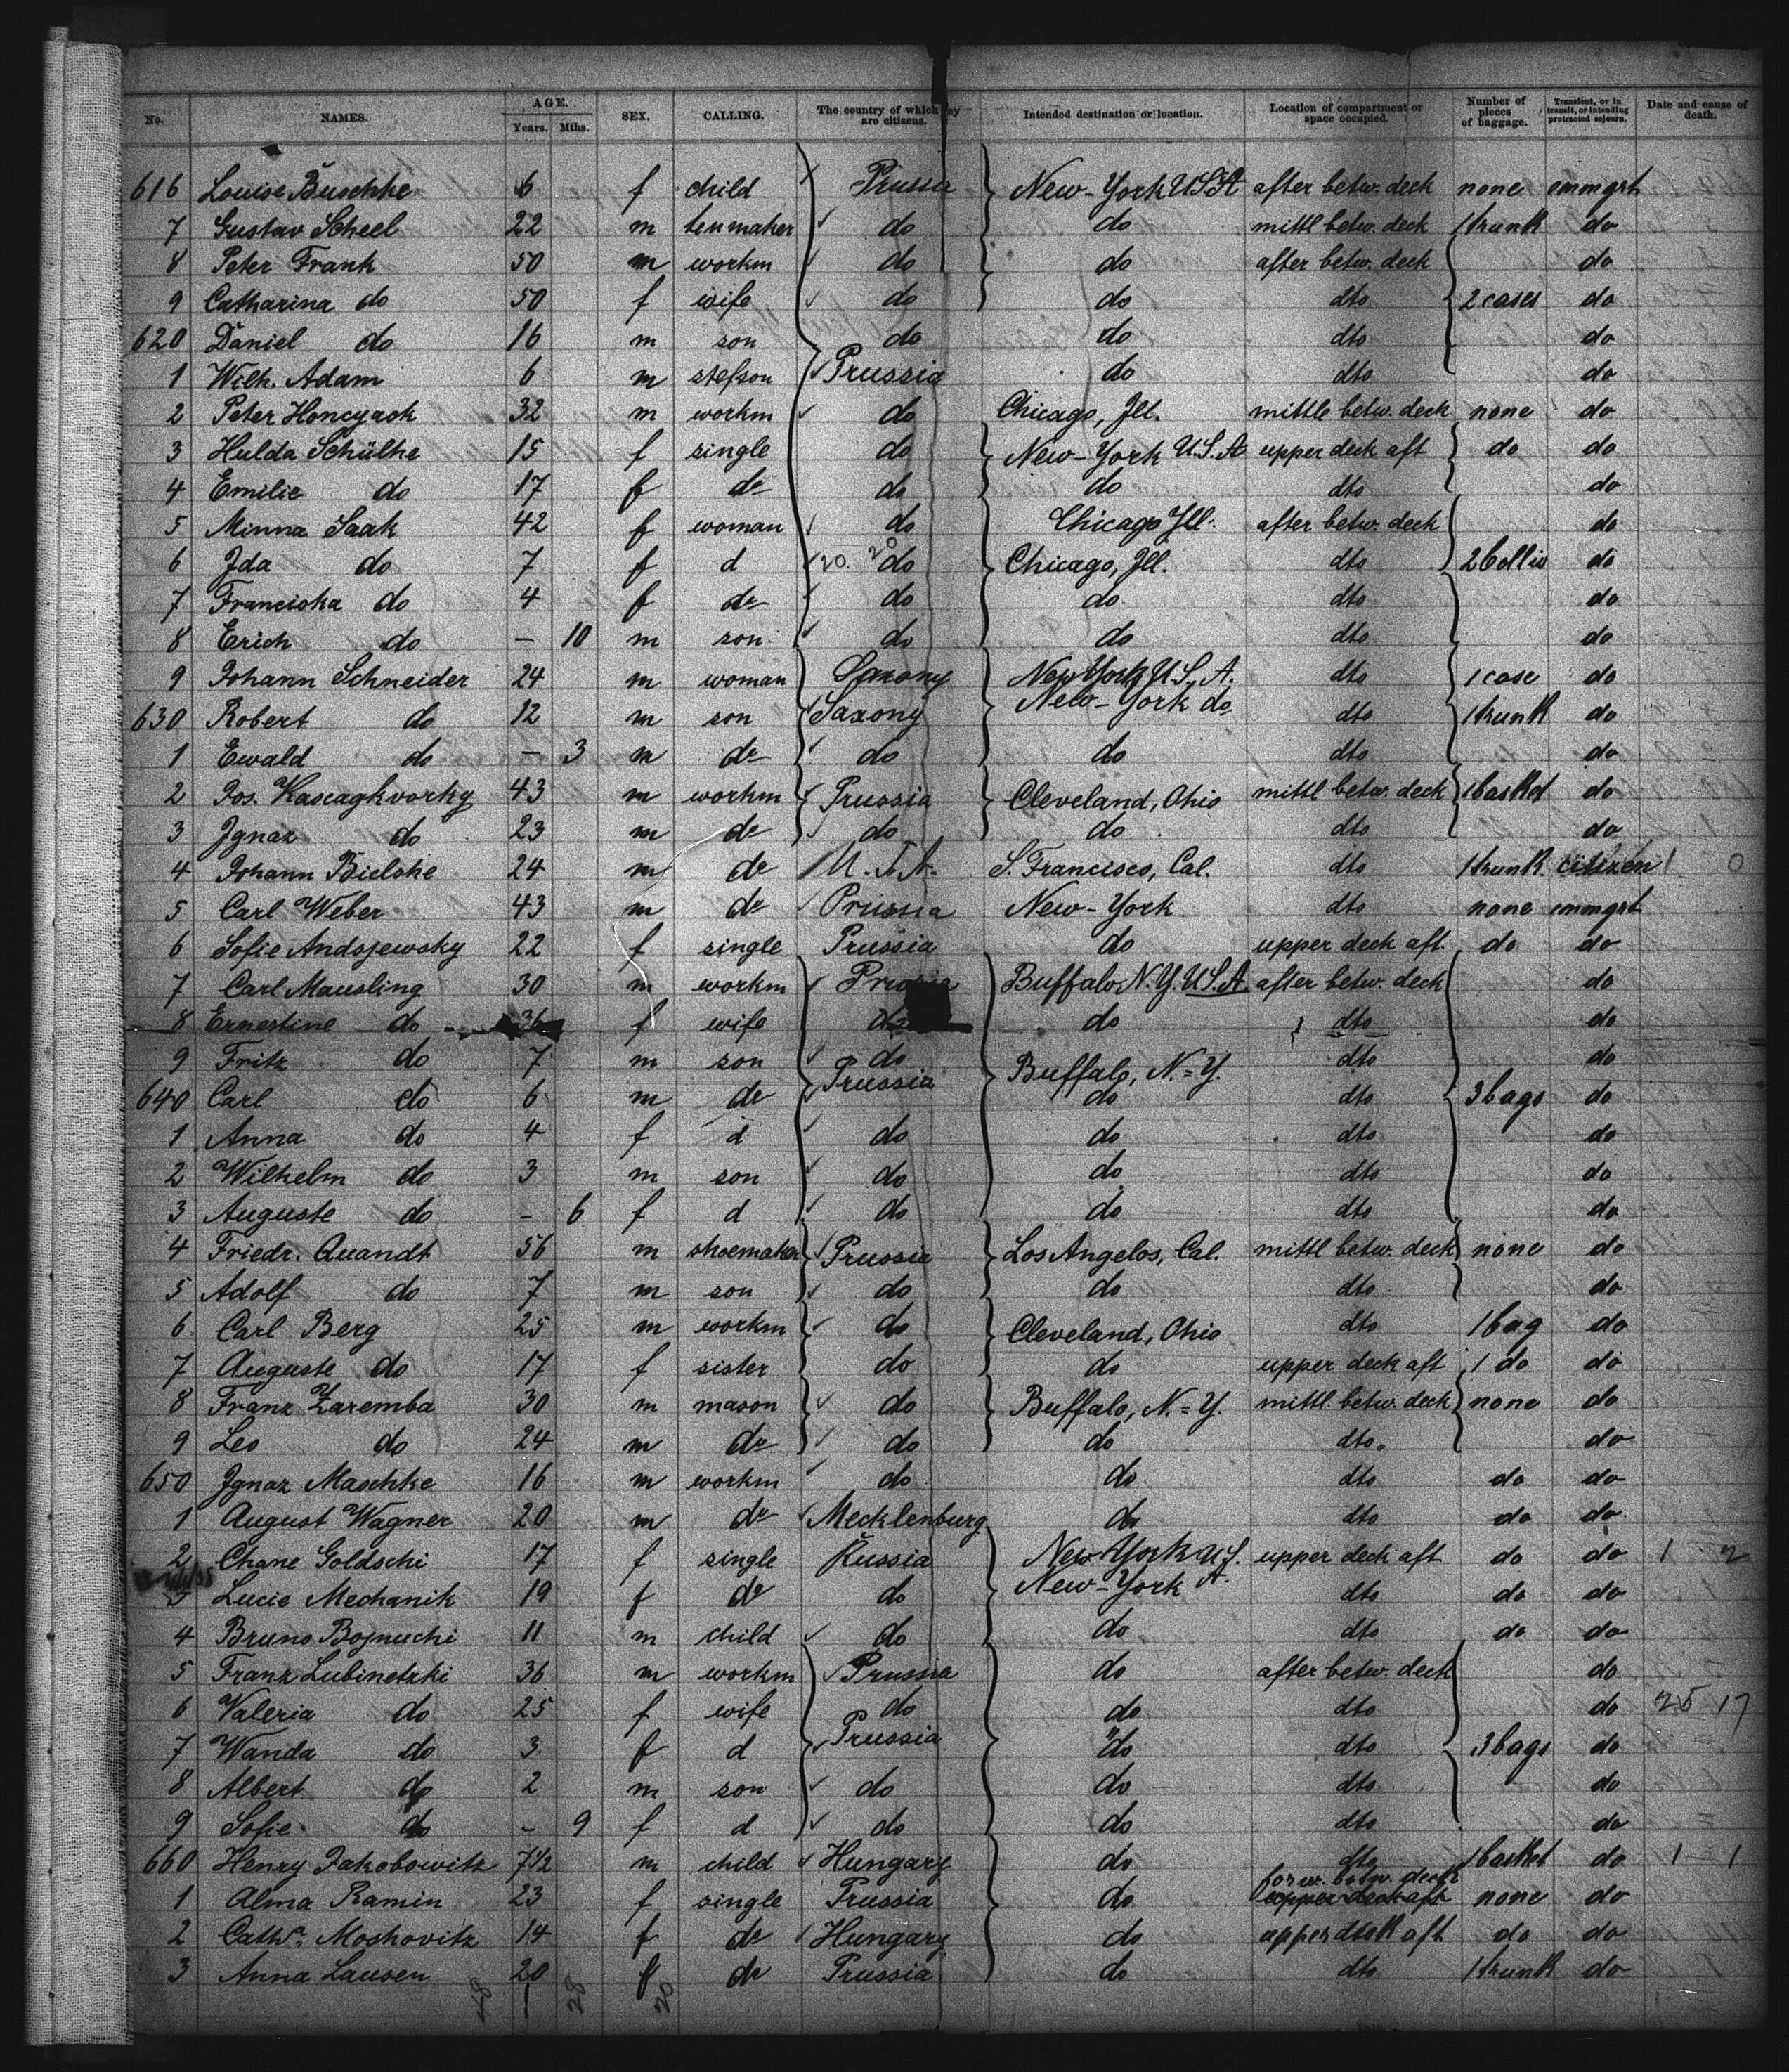 No. NAMES. AGE. Years. Mths. SEX. CALLING. The country of which they are citizens. Intended destination or location. Location of compartment or space occupied. Number of pieces of baggage. Transient, or in transit, or intending protracted sojourn. Date and cause of death.
616 Louise Buschke 6 f child Prussia New-York USA after betw. deck none emmgrt
7 Gustav Scheel 22 m do do mittl betw. deck 1 trunk do
8 Peter Frank 50 m workm do do after betw. deck do
9 Catharina do 50 f wife do do dto 2 cases do
620 Daniel do 16 m son do do dto do
1 Wilh. Adam 6 m stefson Prussia do dto do
2 Peter Honcyack 32 m workm do Chicago, Ill. mittle betw. deck none do
3 Hulda Schülke 15 f single do New-York U.S.A upper deck aft do do
4 Emilie do 17 f do do do dto do
5 Minna Saak 42 f woman do Chicago Ill. after betw. deck do
6 Ida do 7 f d 20. 20 do Chicago, Ill. dto 2 Collis do
7 Franciska do 4 f do do do dto do
8 Erich do – 10 m son do do dto do
9 Johann Schneider 24 m woman Saxony New York U.S.A. dto 1 case do
630 Robert do 12 m son Saxony New-York do dto 1 trunk do
1 Ewald do – 3 m do do do dto do
2 Jos. Kascagkvorky 43 m workm Prussia Cleveland, Ohio mittl betw. deck 1 basket do
3 Ignaz do 23 m do do do dto do
4 Johann Bielske 24 m do U.S.A. S. Francisco, Cal. dto 1 trunk citizen 1 0
5 Carl Weber 43 m do Prussia New-York dto none emmgrt
6 Sofie Andsjewsky 22 f single Prussia do upper deck aft. do do
7 Carl Mausling 30 m workm Prussia Buffalo N.Y. U.S.A after betw. deck do
8 Ernestine do 36 f wife do do dto do
9 Fritz do 7 m son do Buffalo, N.=Y. dto do
640 Carl do 6 m do Prussia do dto 3 bags do
1 Anna do 4 f d do do dto do
2 Wilhelm do 3 m son do do dto do
3 Auguste do – 6 f d do do dto do
4 Friedr. Quandt 56 m shoemaker Prussia Los Angelos, Cal. mittl betw. deck none do
5 Adolf do 7 m son do do dto do
6 Carl Berg 25 m workm do Cleveland, Ohio dto 1 bag do
7 Auguste do 17 f sister do do upper deck aft 1 do do
8 Franz Zaremba 30 m mason do Buffalo, N.=Y. mittl. betw. deck none do
9 Leo do 24 m do do do dto. do
650 Ignaz Maschke 16 m workm do do dto do do
1 August Wagner 20 m do Mecklenburg do dto do do
2 Chane Goldschi 17 f single Russia New York U.S. A. upper deck aft do do 1 2
3 Lucie Mechanik 19 f do do New-York dto do do
4 Bruno Bojnucki 11 m child do do dto do do
5 Franz Lubinetzki 36 m workm Prussia do after betw. deck do
6 Valeria do 25 f wife do do dto do 25 17
7 Wanda do 3 f d Prussia do dto 3 bags do
8 Albert do 2 m son do do dto do
9 Sofie do – 9 f d do do dto do
660 Henry Jakobowitz 7½ m child Hungary do dto 1 basket do 1 1
1 Alma Ramin 23 f single Prussia do forw. betw. deck upper deck aft none do
2 Cathr. Moskovitz 14 f do Hungary do upper deck aft do do
3 Anna Lausen 20 f do Prussia do dto 1 trunk do
28 20